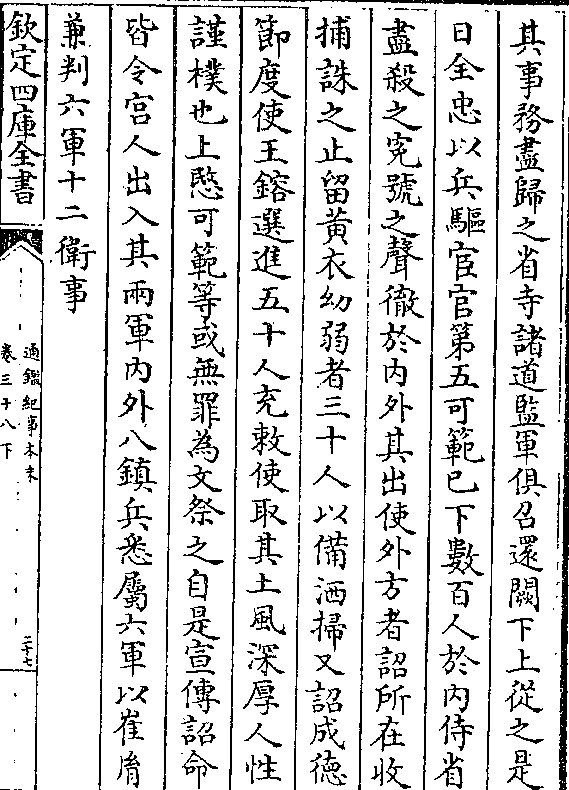 其事務盡歸之省寺諸道監軍俱召還闕下上從之是
日全忠以兵驅宦官第五可範已下數百人於内侍省
盡殺之寃號之聲徹於内外其出使外方者詔所在收
捕誅之止留黃衣幼弱者三十人以備洒掃又詔成徳
節度使王鎔選進五十人充敕使取其土風深厚人性
謹樸也上愍可範等或無罪為文祭之自是宣傳詔命
皆令宫人出入其兩軍内外八鎮兵悉屬六軍以崔胤
兼判六軍十二衛事
欽定四庫全書
通鑑紀事本末
卷三十八下
二十七